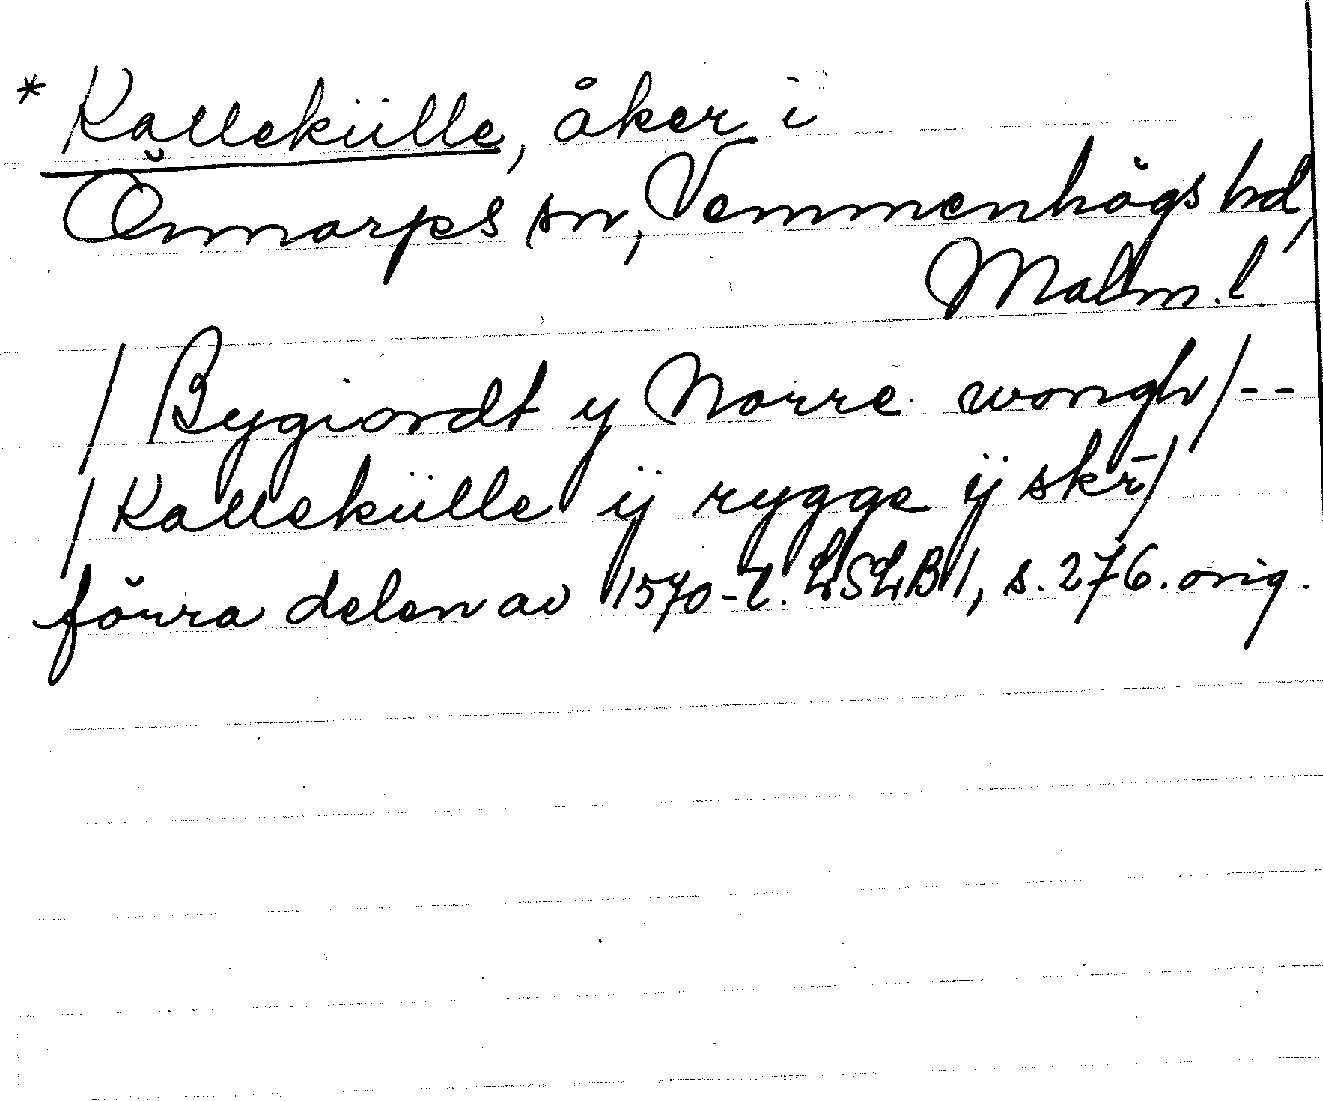 * Kallekülle, åker i
Önnarps sn, Vemmenhögs hd,
Malm. l.
/ Bygiordt y Norre wongh/--
/ Kallekülle ij rygge ÿ skr̄/
förra delen av 1570-t. LSLB 1, s. 276. orig.